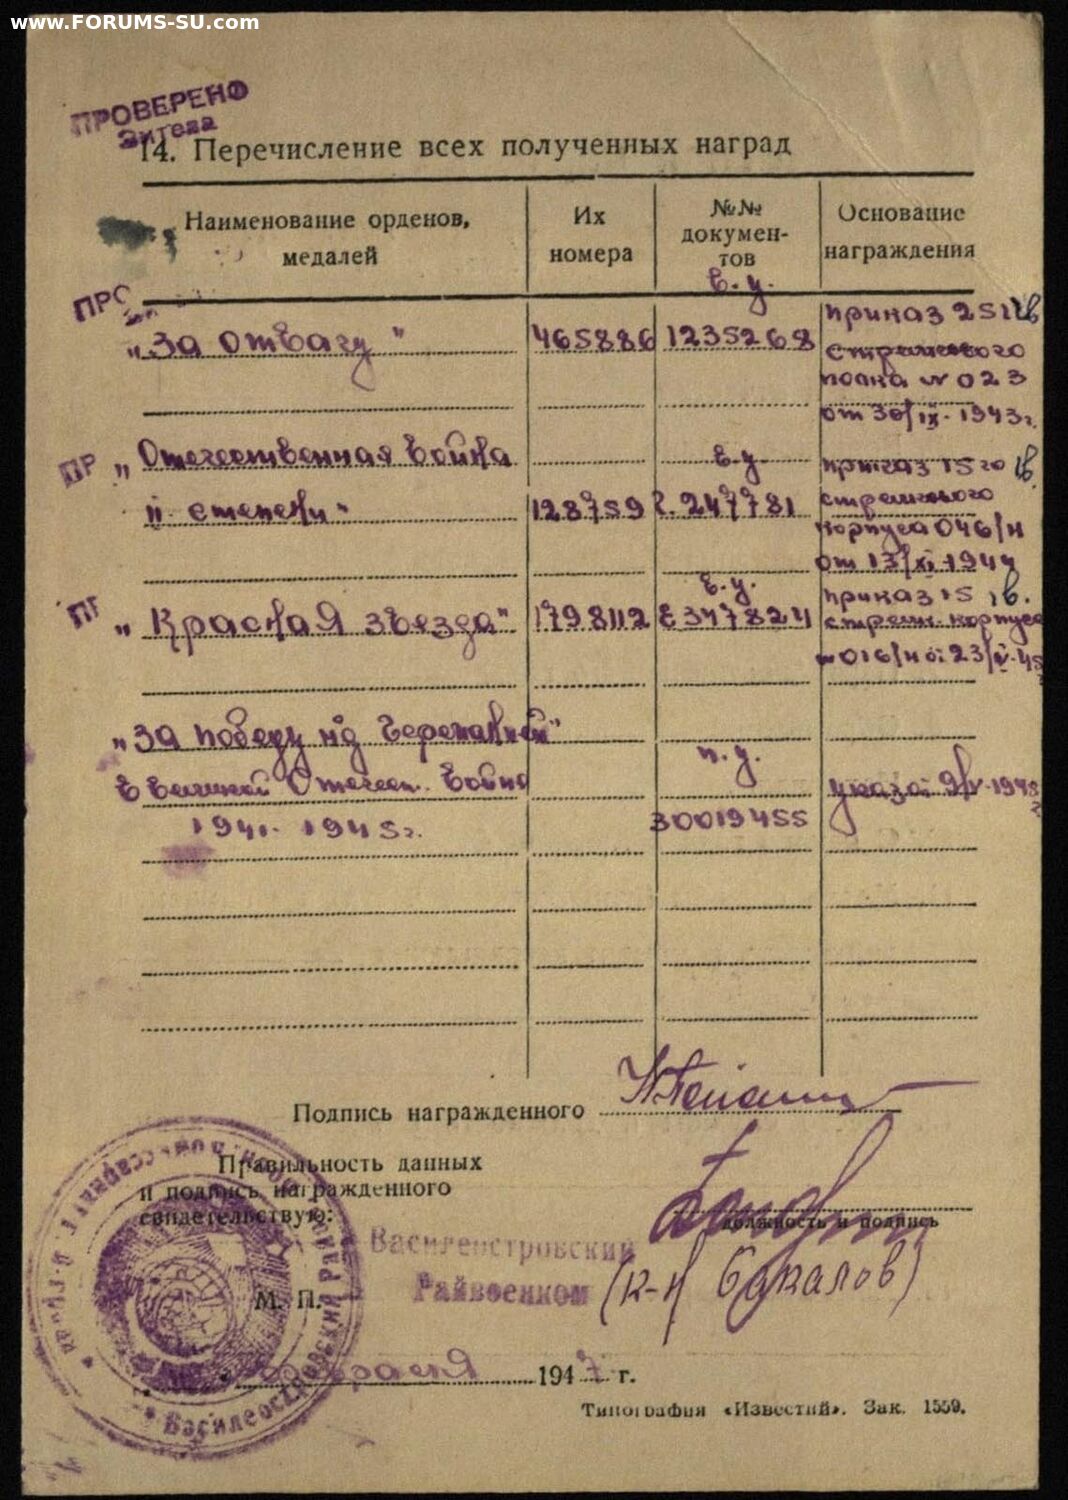 www.FORUMS-SU.com
ПРОВЕРЕНО
14. Перечисление всех полученных наград
Наименование орденов, медалей
Их номера
№№ докумен-тов
Основание награждения
ПРО
в. у.
„За отвагу" 465886 1235268
приказ
стрелкового
полка № 023
от 30/IX-1943г.
ПР
„Отечественная война
II степени" 128759 247781
в. у.
приказ
стрелкового
корпуса 046/н
от 13/XI-1944
ПР
в. у.
„Красная звезда" 1798112 Е 347824
приказ
стрелк. корпуса
016/н от 23/
„За победу над Германией"
в Великой Отечест. войне
1941-1945г.
п. у.
30019455
указ от 9/V-1945
Подпись награжденного
Правильность данных
и подпись награжденного
свидетельствую:
должность и подпись
Василеостровский
Райвоенком
М. П.
февраля 1947 г.
Василеостровский
Типография «Известий». Зак. 1559.